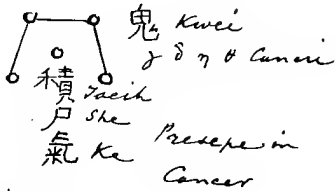 鬼 Kwei
γ δ η θ Cancri
積 Tseih
尸 She
氣 Ke
Presepe in
Cancer